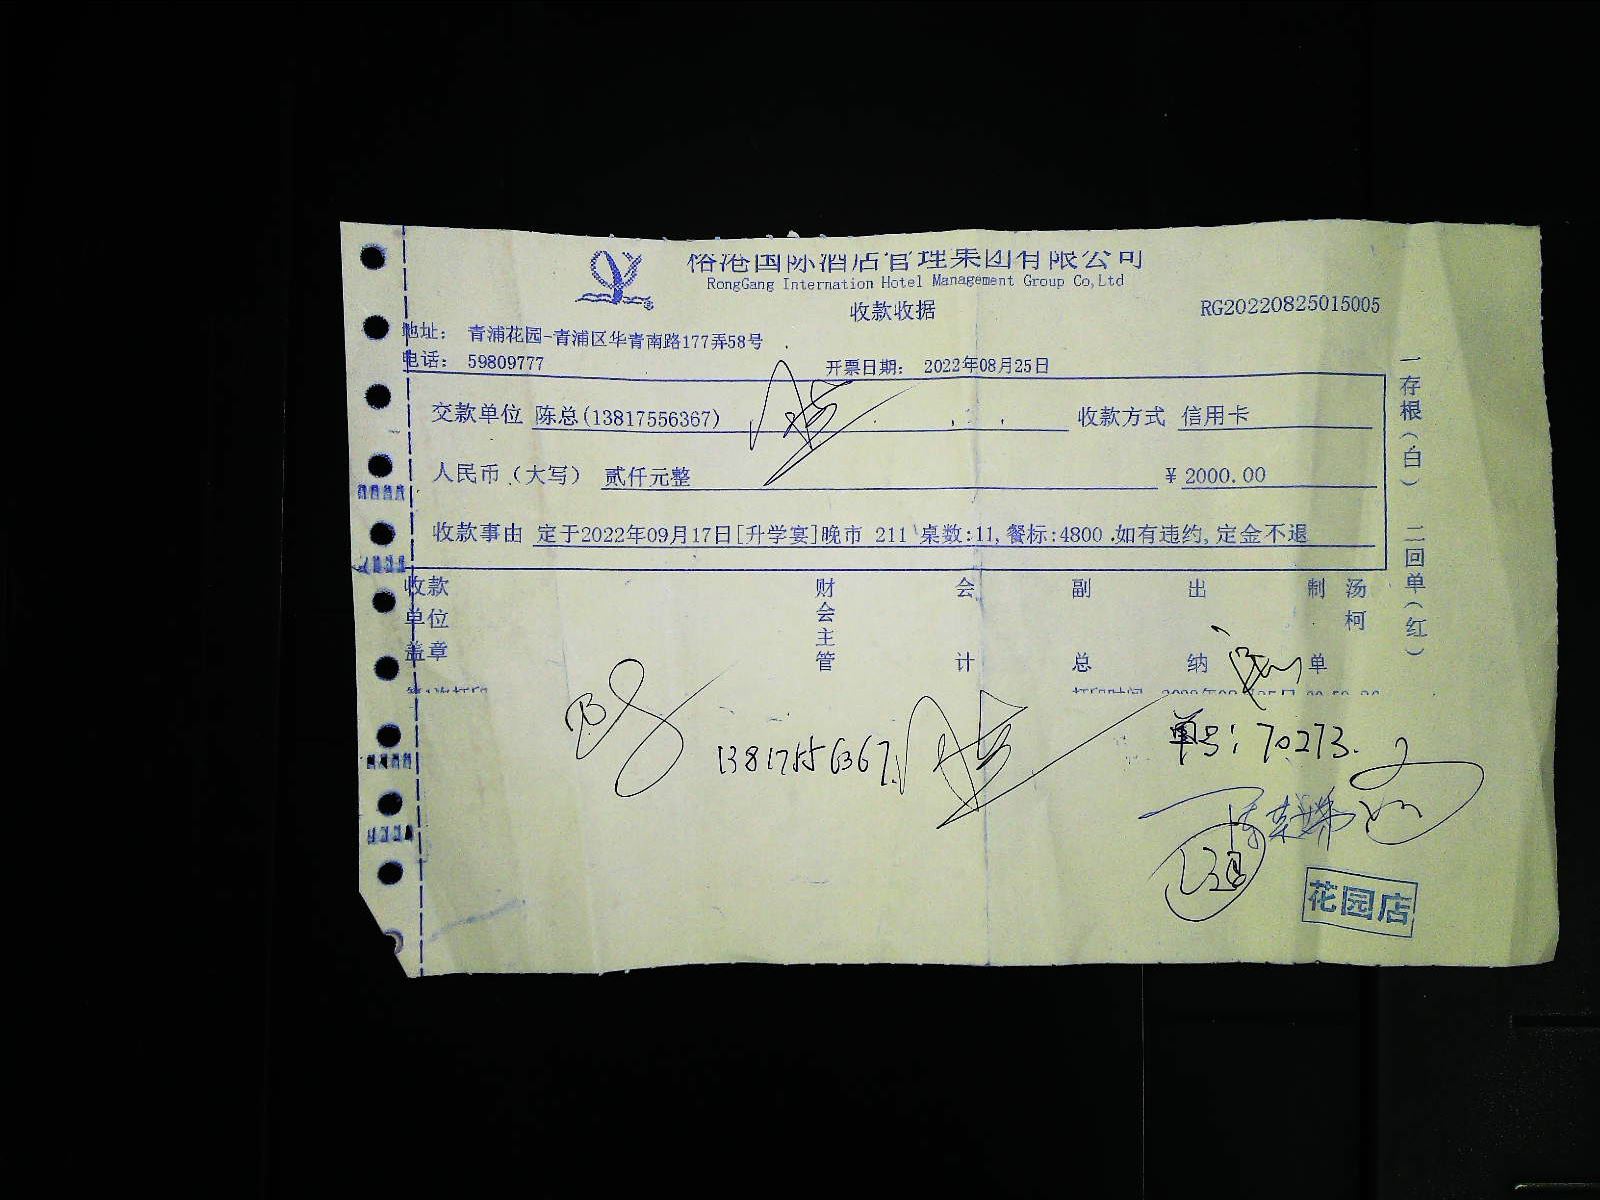 国际酒店管理集团有限公司
RongGang Internation Hotel Management Group Co,Ltd
收款收据
RG20220825015005
地址： 青浦花园-青浦区华青南路177弄58号
电话： 59809777
开票日期： 2022年08月25日
交款单位 陈总(13817556367) 收款方式 信用卡
人民币（大写） 贰仟元整 ¥ 2000.00
收款事由 定于2022年09月17日[升学宴]晚市 211 桌数:11,餐标:4800 .如有违约,定金不退
收款单位盖章 财会主管 会计 副总 出纳 制单 汤柯
一存根（白） 二回单（红）
13817556367
单号: 70273.
花园店